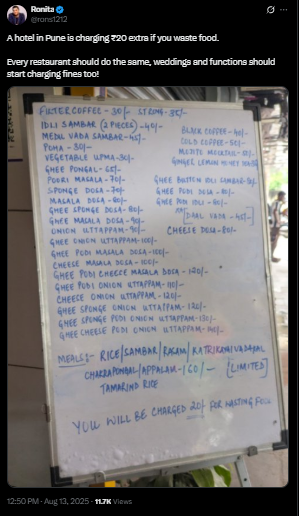 Ronita
@rons1212
A hotel in Pune is charging ₹20 extra if you waste food.
Every restaurant should do the same, weddings and functions should
start charging fines too!
FILTER COFFEE - 30/- STRONG - 35/-
IDLI SAMBAR (2 PIECES) - 40/-
MEDU VADA SAMBAR - 45/-
UPMA - 30/-
VEGETABLE UPMA - 30/-
GHEE PONGAL - 65/-
POORI MASALA - 70/-
SPONGE DOSA - 70/-
MASALA DOSA - 80/-
GHEE SPONGE DOSA - 80/-
GHEE MASALA DOSA - 90/-
ONION UTTAPPAM - 90/-
GHEE ONION UTTAPPAM - 100/-
GHEE PODI MASALA DOSA - 100/-
CHEESE MASALA DOSA - 100/-
GHEE PODI CHEESE MASALA DOSA - 120/-
GHEE PODI ONION UTTAPPAM - 110/-
CHEESE ONION UTTAPPAM - 120/-
GHEE SPONGE ONION UTTAPPAM - 120/-
GHEE SPONGE PODI ONION UTTAPPAM - 130/-
GHEE CHEESE PODI ONION UTTAPPAM - 140/-
BLACK COFFEE - 40/-
COLD COFFEE - 50/-
MOJITO MOCKTAIL
GINGER LEMON HONEY
GHEE BUTTON IDLI SAMBAR
GHEE PODI DOSA - 80/-
GHEE PODI IDLI - 60/-
[DAHI VADA - 45/-]
CHEESE DOSA - 80/-
MEALS :- RICE/SAMBAR/RASAM/
CHAKRAPONGAL/APPALAM - 160/- [LIMITED]
TAMARIND RICE
YOU WILL BE CHARGED 20/- FOR WASTING FOOD
12:50 PM · Aug 13, 2025 · 11.7K Views